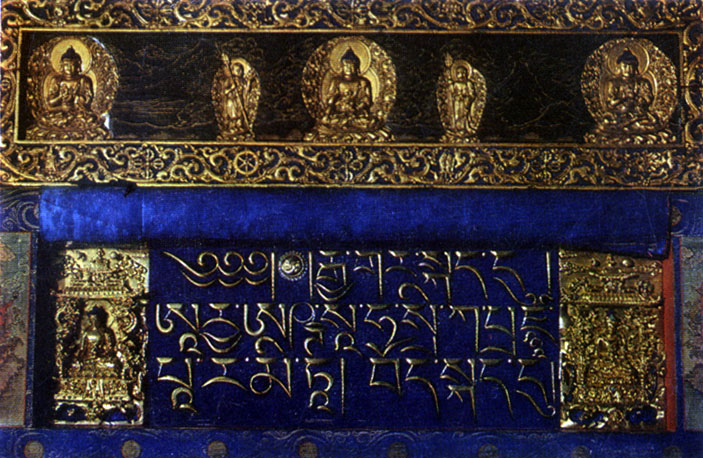 ༄༅༅། ༈ །རྒྱ་གར་སྐད་དུ།
ཨཱརྱ་ཨཥྚ་སཱ་ཧ་སྲི་ཀཱ་པྲཛྙཱ་
པཱ་ར་མི་ཏཱ། བོད་སྐད་དུ།